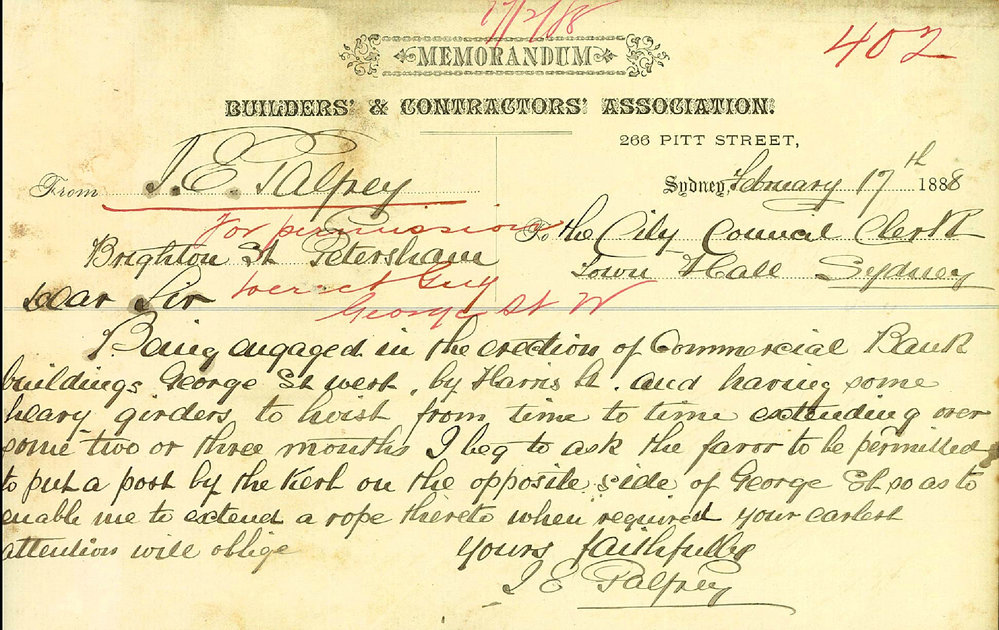 17/2/88
402
MEMORANDUM
BUILDERS' & CONTRACTORS' ASSOCIATION.
266 PITT STREET,
From J. E. Palfrey
Sydney, February 17th 1888
For permission
To the City Council Clerk
Brighton St Petersham
Town Hall Sydney
Dear Sir
to erect Guy
George St W
Being engaged in the erection of Commercial Bank
buildings George St west, by Harris St. and having some
heavy girders to hoist from time to time extending over
some two or three months I beg to ask the favor to be permitted
to put a post by the Kerb on the opposite side of George St so as to
enable me to extend a rope thereto when required your earlest
attention will oblige
yours faithfully
J E Palfrey